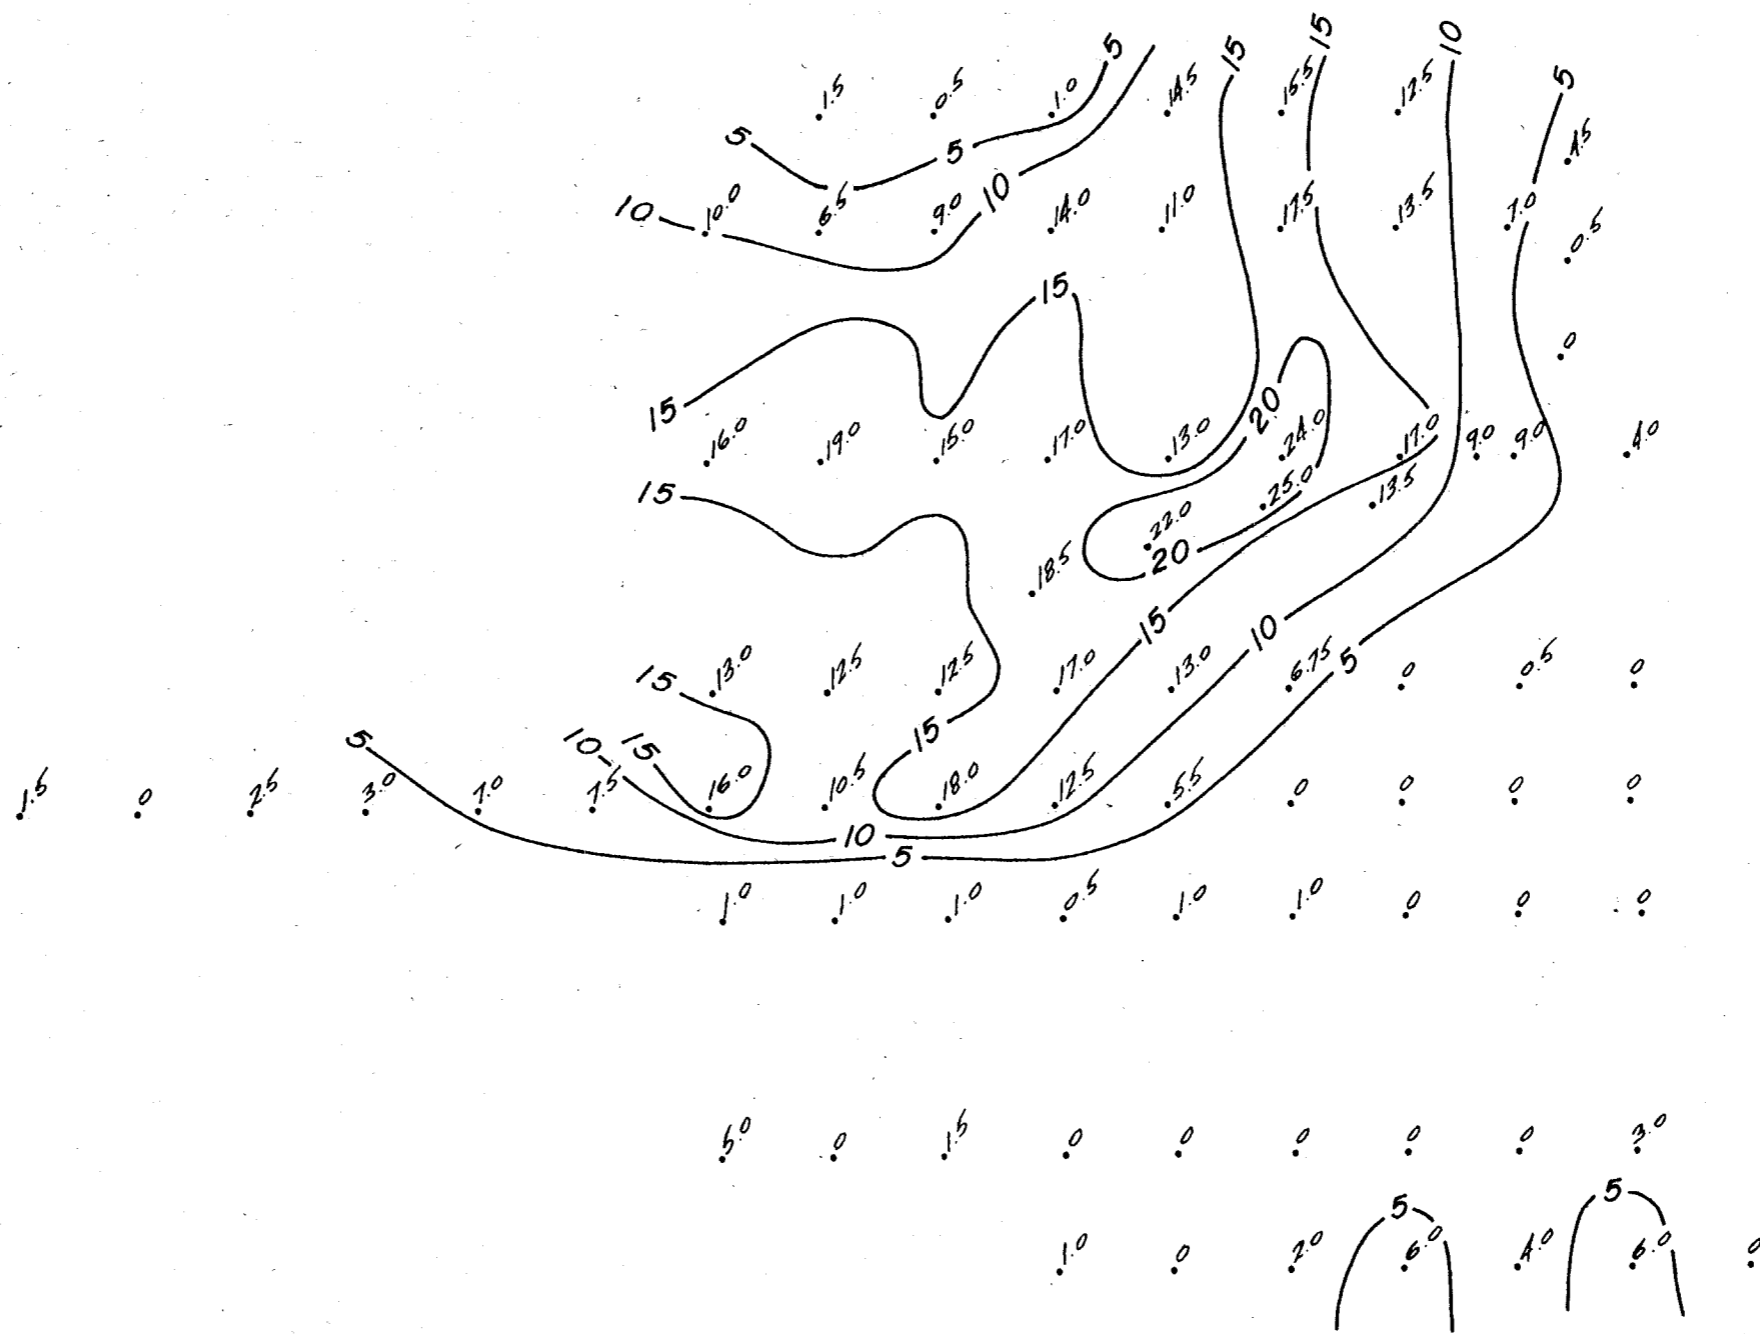 5 15 15 10 5
1.5 0.5 1.0 14.5 15.5 12.5
5 5 4.5
10 10.0 6.5 9.0 10 14.0 11.0 17.5 13.5 7.0 0.5
15 0
15 20
16.0 19.0 15.0 17.0 13.0 24.0 17.0 9.0 9.0 4.0
15 25.0 13.5
22.0
18.5 20
15 10
15 13.0 12.5 12.5 17.0 13.0 6.75 5 0 0.5 0
5 10 15 15
1.5 0 2.5 3.0 7.0 7.5 16.0 10.5 18.0 12.5 5.5 0 0 0 0
10
5
1.0 1.0 1.0 0.5 1.0 1.0 0 0 0
5.0 0 1.5 0 0 0 0 0 3.0
5 5
1.0 0 2.0 6.0 4.0 6.0 0